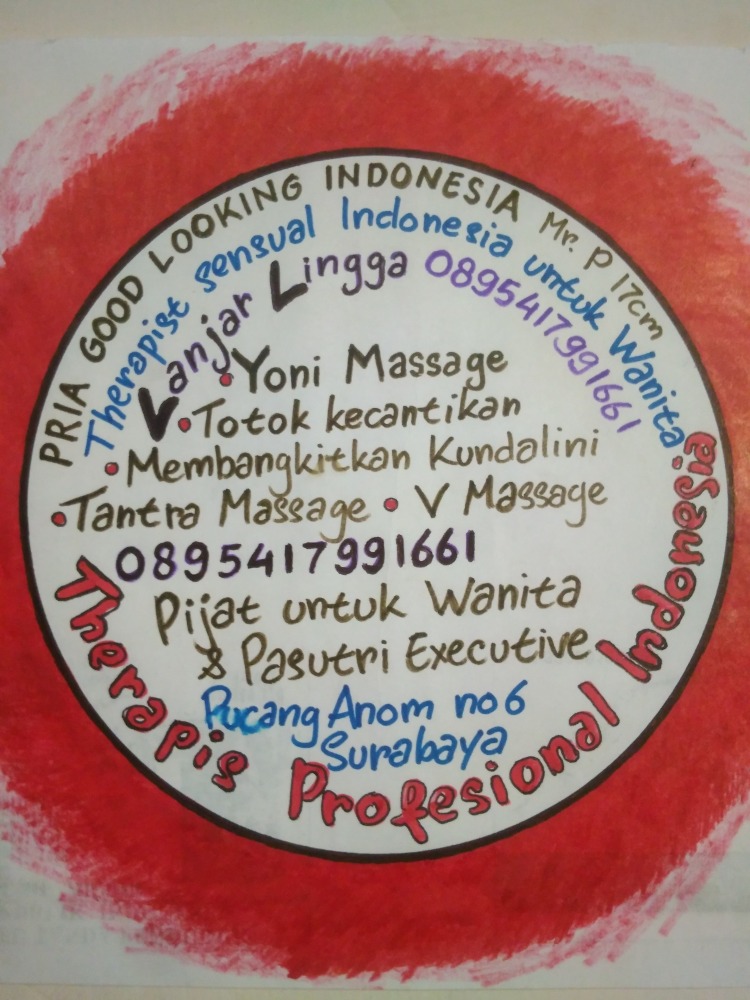 PRIA GOOD LOOKING INDONESIA Mr. P 17cm
Therapist sensual Indonesia untuk Wanita
Vanjar Lingga 0895417991661
•Yoni Massage
•Totok kecantikan
•Membangkitkan Kundalini
•Tantra Massage • V Massage
0895417991661
Pijat untuk Wanita
& Pasutri Executive
Pucang Anom no 6
Surabaya
Therapis Profesional Indonesia